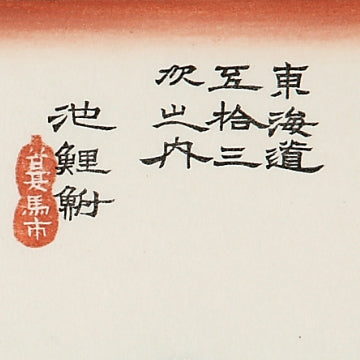 東海道
五拾三
次之内
池鯉鮒
首夏馬市